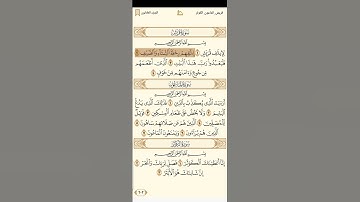 قريش الماعون الكوثر
الجزء الثلاثون
سُورَةُ قُرَيْشٍ
بِسْمِ اللَّهِ الرَّحْمَٰنِ الرَّحِيمِ
لِإِيلَافِ قُرَيْشٍ ١ إِيلَافِهِمْ رِحْلَةَ الشِّتَاءِ وَالصَّيْفِ ٢
فَلْيَعْبُدُوا رَبَّ هَٰذَا الْبَيْتِ ٣ الَّذِي أَطْعَمَهُم
مِّن جُوعٍ وَآمَنَهُم مِّنْ خَوْفٍ ٤
سُورَةُ المَاعُونِ
بِسْمِ اللَّهِ الرَّحْمَٰنِ الرَّحِيمِ
أَرَأَيْتَ الَّذِي يُكَذِّبُ بِالدِّينِ ١ فَذَٰلِكَ الَّذِي يَدُعُّ
الْيَتِيمَ ٢ وَلَا يَحُضُّ عَلَىٰ طَعَامِ الْمِسْكِينِ ٣ فَوَيْلٌ
لِّلْمُصَلِّينَ ٤ الَّذِينَ هُمْ عَن صَلَاتِهِمْ سَاهُونَ ٥
الَّذِينَ هُمْ يُرَاءُونَ ٦ وَيَمْنَعُونَ الْمَاعُونَ ٧
سُورَةُ الكَوْثَرِ
بِسْمِ اللَّهِ الرَّحْمَٰنِ الرَّحِيمِ
إِنَّا أَعْطَيْنَاكَ الْكَوْثَرَ ١ فَصَلِّ لِرَبِّكَ وَانْحَرْ ٢
إِنَّ شَانِئَكَ هُوَ الْأَبْتَرُ ٣
٦٠٢